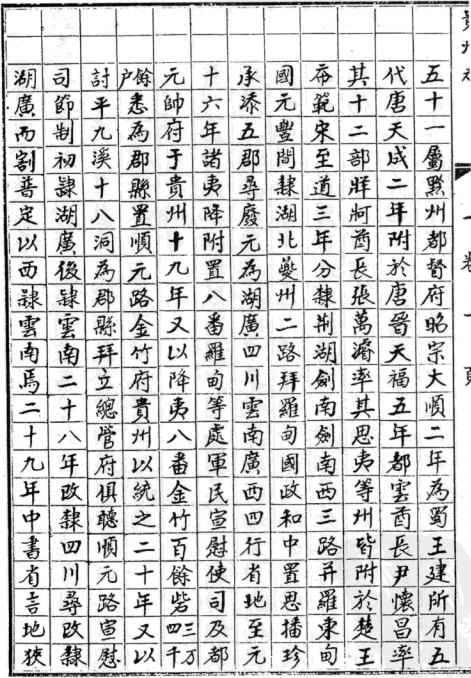 五十一屬黔州都督府昭宗大順二年為蜀王建所有五
代唐天成二年附於唐晉天福五年都雲酋長尹懷昌率
其十二部牂牁酋長張萬濬率其思夷等州皆附於楚王
希範宋至道三年分隸荆湖劍南劍南西三路并羅東甸
國元豐間隸湖北夔州二路拜羅甸國政和中置思播珍
承添五郡尋廢元為湖廣四川雲南廣西四行省地至元
十六年諸夷降附置八番羅甸等處軍民宣慰使司及都
元帥府于貴州十九年又以降夷八番金竹百餘砦三万四千
餘户悉為郡縣置順元路金竹府貴州以統之二十年又以
討平九溪十八洞為郡縣拜立總管府俱聽順元路宣慰
司節制初隸湖廣後隸雲南二十八年改隸四川尋改隸
湖廣而割普定以西隸雲南焉二十九年中書省言地狹